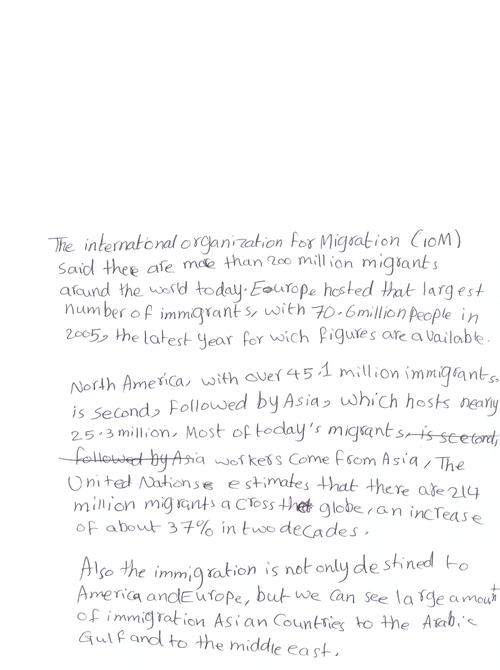 The international organization for Migration (IOM)
said there are more than 200 million migrants
around the world today. Eourope hosted that largest
number of immigrants, with 70.6 million people in
2005, the latest year for wich figures are available.
North America, with over 45.1 million immigrants,
is second, followed by Asia, which hosts nearly
25.3 million. Most of today's migrants, is sceond,
followed by Asia workers come from Asia, The
United Nations estimates that there are 214
million migrants across the globe, an increase
of about 37% in two decades.
Also the immigration is not only destined to
America and Europe, but we can see large amount
of immigration Asian Countries to the Arabic
Gulf and to the middle east.